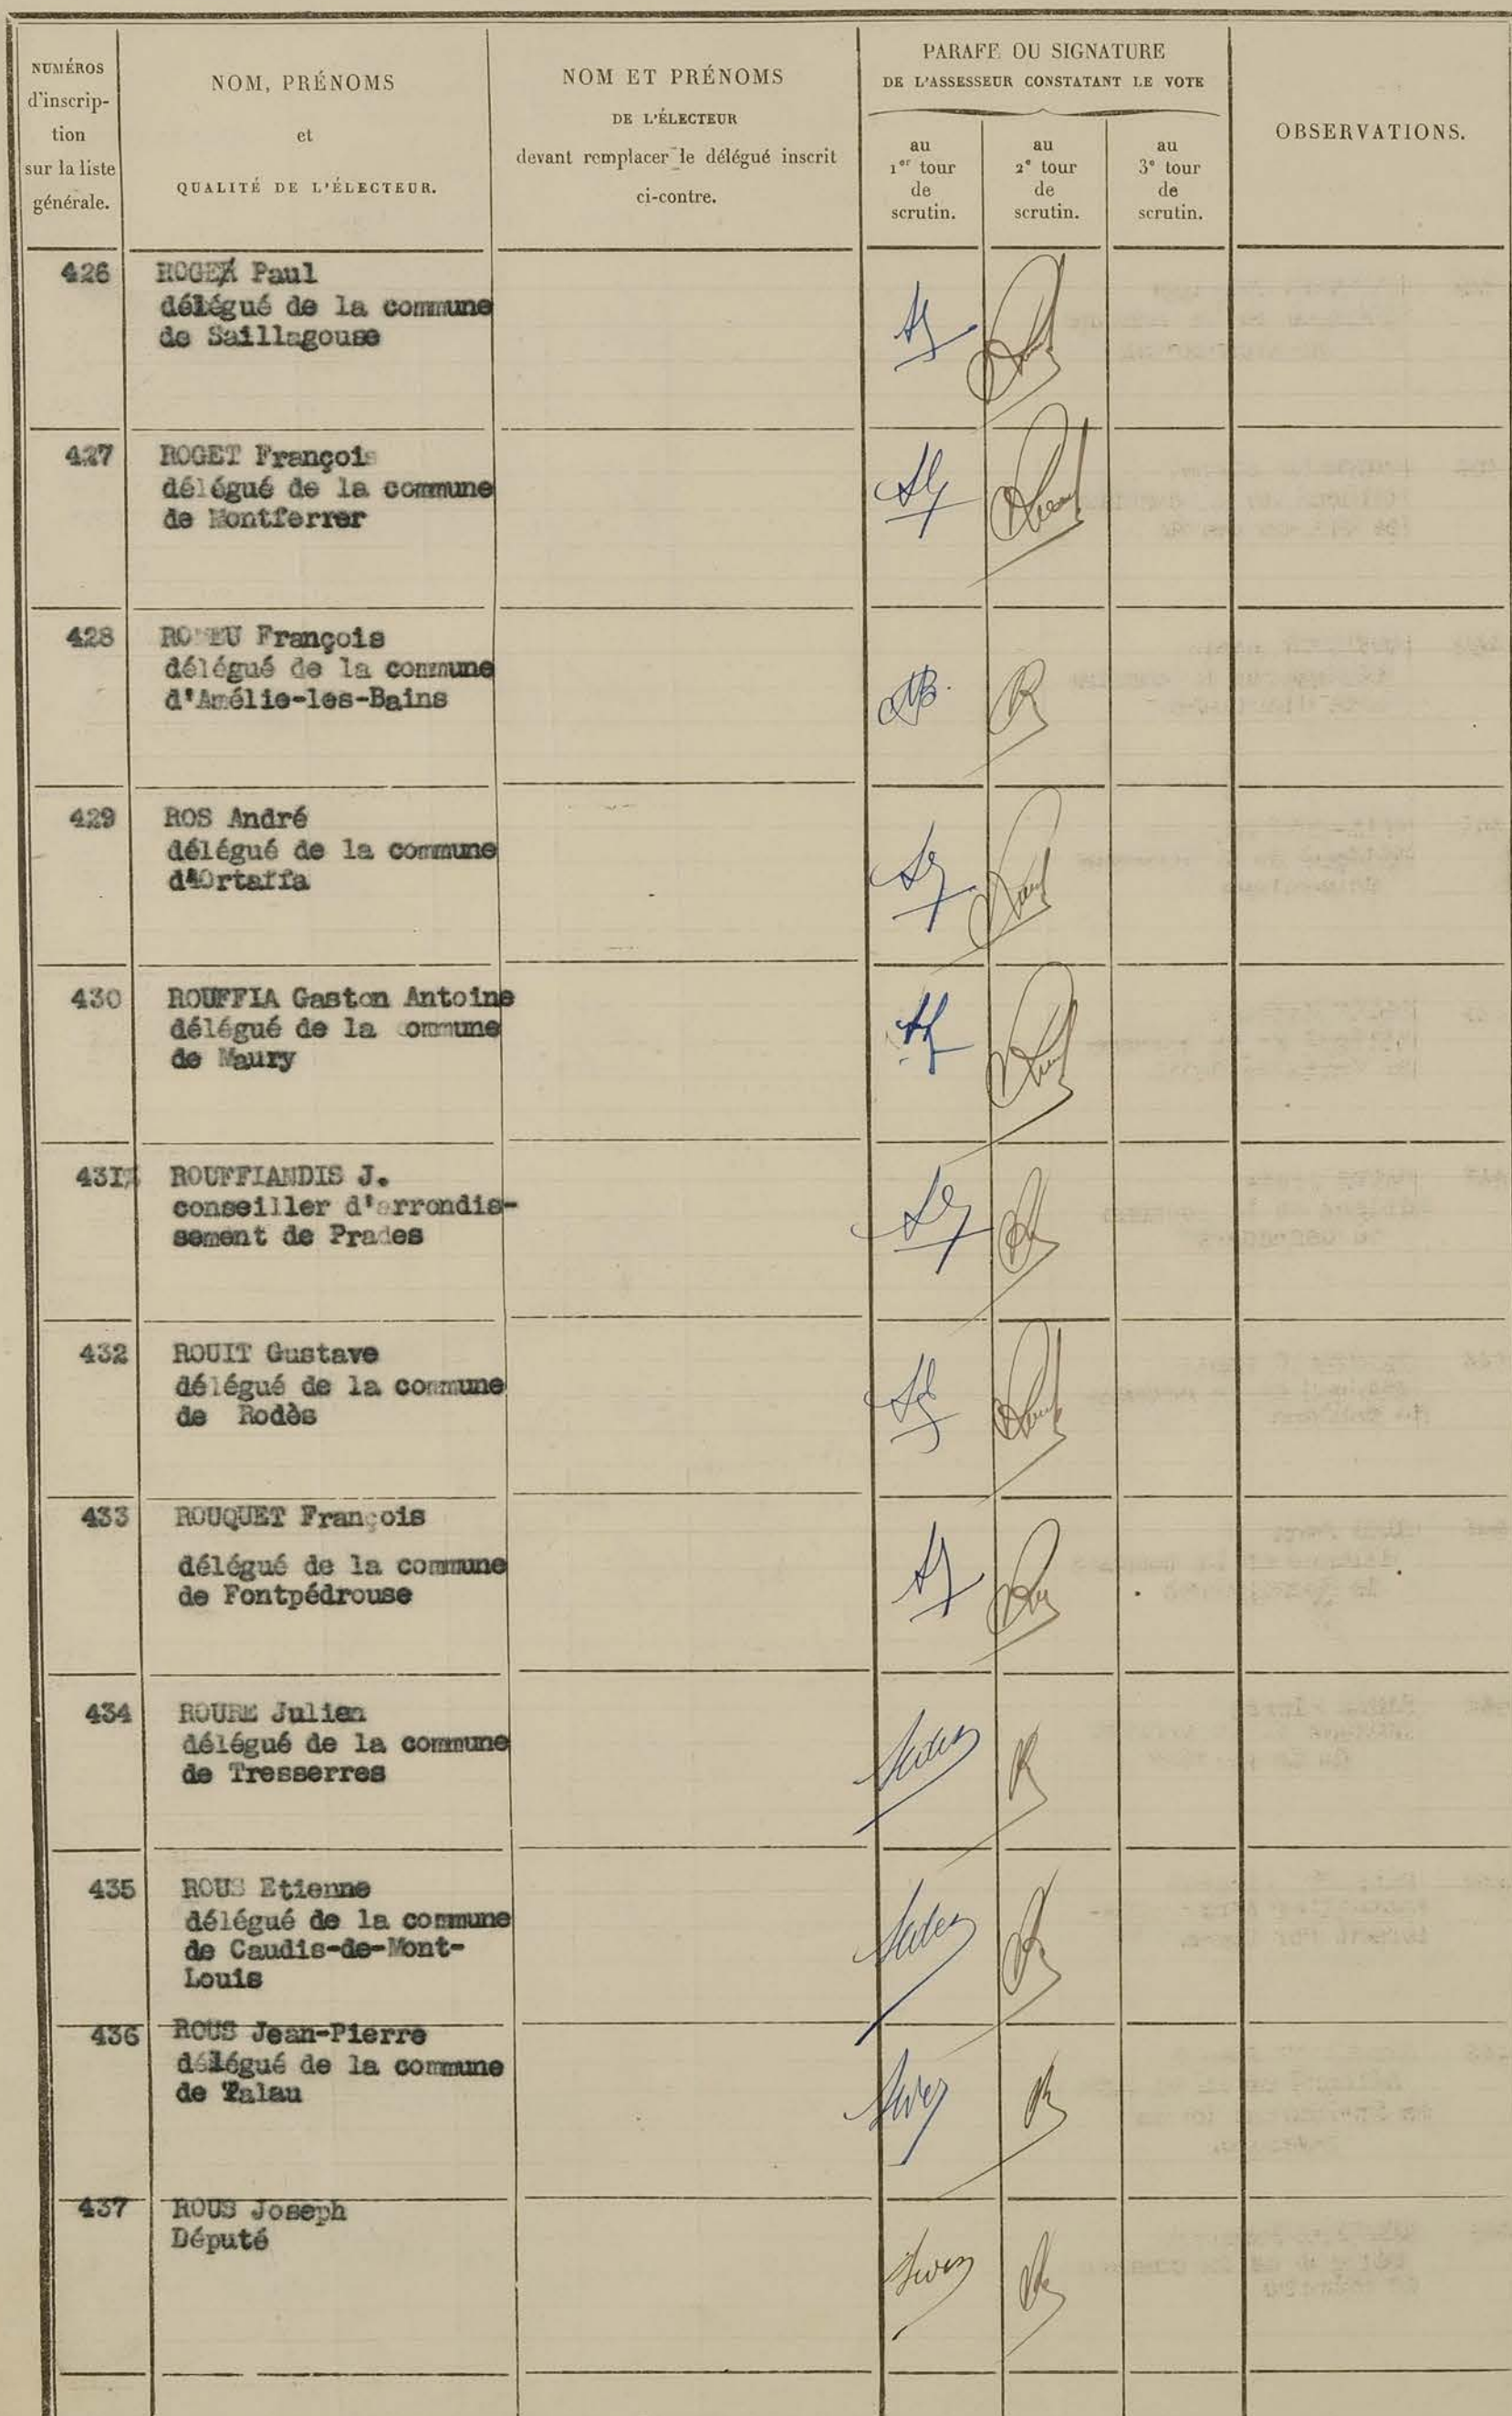 NUMÉROS
d'inscrip-
tion
sur la liste
générale.
NOM, PRÉNOMS
et
QUALITÉ DE L'ÉLECTEUR.
NOM ET PRÉNOMS
DE L'ÉLECTEUR
devant remplacer le délégué inscrit
ci-contre.
PARAFE OU SIGNATURE
DE L'ASSESSEUR CONSTATANT LE VOTE
au
1er tour
de
scrutin.
au
2e tour
de
scrutin.
au
3e tour
de
scrutin.
OBSERVATIONS.
426 Paul
délégué de la commune
de Saillagouse
427 ROGET François
délégué de la commune
de Montferrer
428 François
délégué de la commune
d'Amélie-les-Bains
429 ROS André
délégué de la commune
d'Ortaffa
430 ROUFFIA Gaston Antoine
délégué de la ommune
de Maury
431 ROUFFIANDIS J.
conseiller d'arrondis-
sement de Prades
432 ROUIT Gustave
délégué de la commune
de Rodès
433 ROUQUET François
délégué de la commune
de Fontpédrouse
434 ROURE Julien
délégué de la commune
de Tresserres
435 ROUS Etienne
délégué de la commune
de Caudis-de-Mont-
Louis
436 ROUS Jean-Pierre
délégué de la commune
de Palau
437 ROUS Joseph
Député